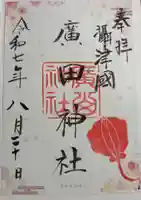 奉拝
攝津國
廣田神社
令和七年八月二十日